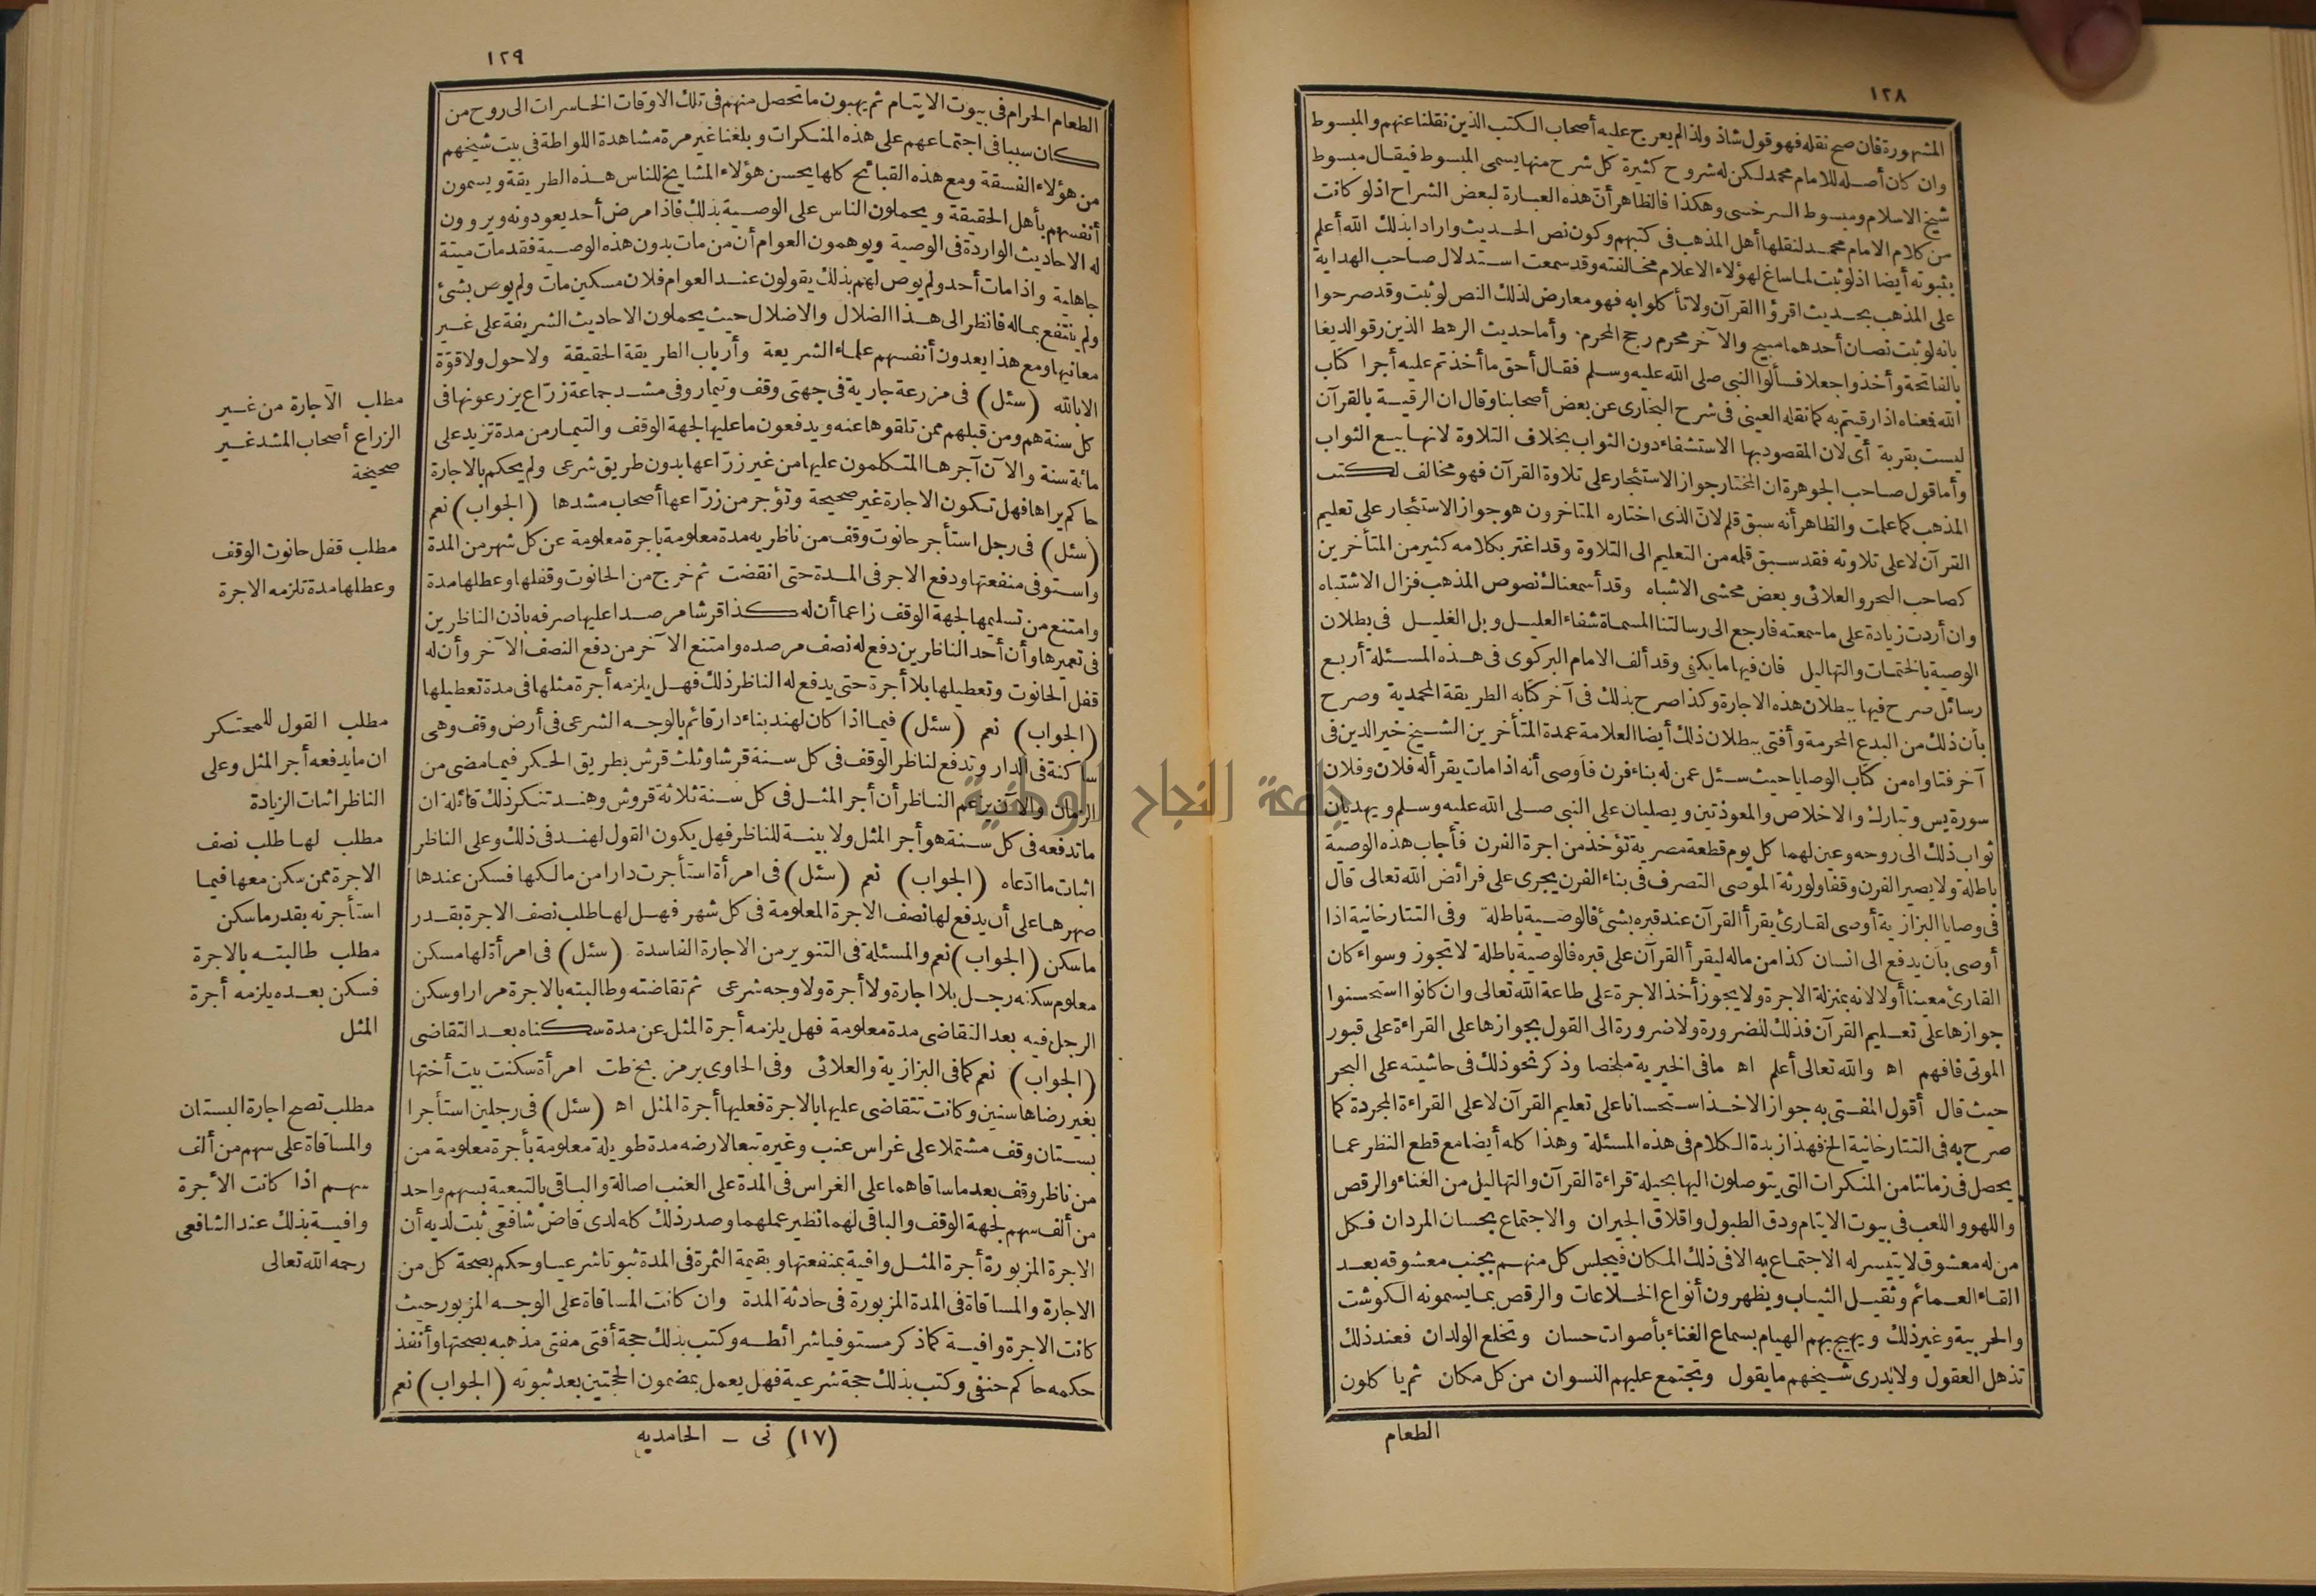 ١٢٨
المشهورة فان صح نقله فهو قول شاذ ولذا لم يعرج عليه أصحاب الكتب الذين نقلنا عنهم والمبسوط
وان كان أصله للامام محمد لكن له شروح كثيرة كل شرح منها يسمى المبسوط فيقال مبسوط
شيخ الاسلام ومبسوط السرخسى وهكذا فالظاهر أن هذه العبارة لبعض الشراح اذلو كانت
من كلام الامام محمد لنقلها أهل المذهب فى كتبهم وكون نص الحديث واردا بذلك الله أعلم
بثبوته أيضا اذ لو ثبت لما ساغ لهؤلاء الاعلام مخالفته وقد سمعت استدلال صاحب الهداية
على المذهب بحديث اقرؤا القرآن ولا تأكلوا به فهو معارض لذلك النص لو ثبت وقد صرحوا
بانه لو ثبت نصان أحدهما مبيح والآخر محرم رجح المحرم . وأما حديث الرهط الذين رقوا لديغا
بالفاتحة وأخذوا جعلا فسألوا النبى صلى الله عليه وسلم فقال أحق ما أخذتم عليه أجرا كتاب
الله فمعناه اذا رقيتم به كما نقله العينى فى شرح البخارى عن بعض أصحابنا وقال ان الرقية بالقرآن
ليست بقربة أى لان المقصود بها الاستشفاء دون الثواب بخلاف التلاوة لانها بيع الثواب
وأما قول صاحب الجوهرة ان المختار جواز الاستئجار على تلاوة القرآن فهو مخالف لكتب
المذهب كما علمت والظاهر أنه سبق قلم لان الذى اختاره المتاخرون هو جواز الاستئجار على تعليم
القرآن لا على تلاوته فقد سبق قلمه من التعليم الى التلاوة وقد اغتر بكلامه كثير من المتأخرين
كصاحب البحر والعلائى وبعض محشى الاشباه وقد أسمعناك نصوص المذهب فزال الاشتباه
وان أردت زيادة على ما سمعته فارجع الى رسالتنا المسماة شفاء العليل وبل الغليل فى بطلان
الوصية بالختمات والتهاليل فان فيها ما يكفى وقد ألف الامام البركوى فى هذه المسئلة أربع
رسائل صرح فيها ببطلان هذه الاجارة وكذا صرح بذلك فى آخر كتابه الطريقة المحمدية وصرح
بأن ذلك من البدع المحرمة وأفتى ببطلان ذلك أيضا العلامة عمدة المتأخرين الشيخ خير الدين فى
آخر فتاواه من كتاب الوصايا حيث سئل عمن له بناء فرن فأوصى أنه اذا مات يقرأ له فلان وفلان
سورة يس وتبارك والاخلاص والمعوذتين ويصليان على النبى صلى الله عليه وسلم ويهديان
ثواب ذلك الى روحه وعين لهما كل يوم قطعة مصرية تؤخذ من اجرة الفرن فأجاب هذه الوصية
باطلة ولا يصير الفرن وقفا ولورثة الموصى التصرف فى بناء الفرن يجرى على فرائض الله تعالى قال
فى وصايا البزازية أوصى لقارئ يقرأ القرآن عند قبره بشئ فالوصية باطلة وفى التتارخانية اذا
أوصى بأن يدفع الى انسان كذا من ماله ليقرأ القرآن على قبره فالوصية باطلة لا تجوز وسواء كان
القارئ معينا أولا لانه بمنزلة الاجرة ولا يجوز أخذ الاجرة على طاعة الله تعالى وان كانوا استحسنوا
جوازها على تعليم القرآن فذلك للضرورة ولا ضرورة الى القول بجوازها على القراءة على قبور
الموتى فافهم اه والله تعالى أعلم اه ما فى الخيرية ملخصا وذكر نحو ذلك فى حاشيته على البحر
حيث قال أقول المفتى به جواز الاخذ استحسانا على تعليم القرآن لا على القراءة المجردة كما
صرح به فى التتارخانية الخ فهذا زبدة الكلام فى هذه المسئلة وهذا كله أيضا مع قطع النظر عما
يحصل فى زماننا من المنكرات التى يتوصلون اليها بحيلة قراءة القرآن والتهاليل من الغناء والرقص
واللهو واللعب فى بيوت الايتام ودق الطبول واقلاق الجيران والاجتماع بحسان المردان فكل
من له معشوق لا يتيسر له الاجتماع به الا فى ذلك المكان فيجلس كل منهم بجنب معشوقه بعد
القاء العمائم وثقيل الثياب ويظهرون أنواع الخلاعات والرقص بما يسمونه الكوشت
والحربية وغير ذلك ويهيج بهم الهيام بسماع الغناء بأصوات حسان وتخلع الولدان فعند ذلك
تذهل العقول ولا يدرى شيخهم ما يقول وتجتمع عليهم النسوان من كل مكان ثم يأكلون
الطعام
١٢٩
الطعام الحرام فى بيوت الايتام ثم يهبون ما تحصل منهم فى تلك الاوقات الخاسرات الى روح من
كان سببا فى اجتماعهم على هذه المنكرات وبلغنا غير مرة مشاهدة اللواطة فى بيت شيخهم
من هؤلاء الفسقة ومع هذه القبائح كلها يحسن هؤلاء المشايخ للناس هذه الطريقة ويسمون
أنفسهم بأهل الحقيقة ويحملون الناس على الوصية بذلك فاذا مرض أحد يعودونه ويروون
له الاحاديث الواردة فى الوصية ويوهمون العوام أن من مات بدون هذه الوصية فقد مات ميتة
جاهلية واذا مات أحد ولم يوص لهم بذلك يقولون عند العوام فلان مسكين مات ولم يوص بشئ
ولم ينتفع بماله فانظر الى هذا الضلال والاضلال حيث يحملون الاحاديث الشريفة على غير
معانيها ومع هذا يعدون أنفسهم علماء الشريعة وأرباب الطريقة الحقيقة ولا حول ولا قوّة
الا بالله (سئل) فى مزرعة جارية فى جهتى وقف وتيمار وفى مشد جماعة زرّاع يزرعونها فى
كل سنة هم ومن قبلهم ممن تلقوها عنه ويدفعون ما عليها لجهة الوقف والتيمار من مدة تزيد على
مائة سنة والآن آجرها المتكلمون عليها من غير زرّاعها بدون طريق شرعى ولم يحكم بالاجارة
حاكم يراها فهل تكون الاجارة غير صحيحة وتؤجر من زرّاعها أصحاب مشدها (الجواب) نعم
(سئل) فى رجل استأجر حانوت وقف من ناظريه مدة معلومة باجرة معلومة عن كل شهر من المدة
واستوفى منفعتها ودفع الاجر فى المدة حتى انقضت ثم خرج من الحانوت وقفلها وعطلها مدة
وامتنع من تسليمها لجهة الوقف زاعما أن له كذا قرشا مرصدا عليها صرفه باذن الناظرين
فى تعميرها وأن أحد الناظرين دفع له نصف مرصده وامتنع الآخر من دفع النصف الآخر وأن له
قفل الحانوت وتعطيلها بلا أجرة حتى يدفع له الناظر ذلك فهل يلزمه أجرة مثلها فى مدة تعطيلها
(الجواب) نعم (سئل) فيما اذا كان لهند بناء دار قائم بالوجه الشرعى فى أرض وقف وهى
ساكنة فى الدار وتدفع لناظر الوقف فى كل سنة قرشا وثلث قرش بطريق الحكر فيما مضى من
الزمان والآن يزعم الناظر أن أجر المثل فى كل سنة ثلاثة قروش وهند تنكر ذلك قائلة ان
ما تدفعه فى كل سنة هو أجر المثل ولا بينة للناظر فهل يكون القول لهند فى ذلك وعلى الناظر
اثبات ما ادّعاه (الجواب) نعم (سئل) فى امرأة استأجرت دارا من مالكها فسكن عندها
صهرها على أن يدفع لها نصف الاجرة المعلومة فى كل شهر فهل لها طلب نصف الاجرة بقدر
ما سكن (الجواب) نعم والمسئلة فى التنوير من الاجارة الفاسدة (سئل) فى امرأة لها مسكن
معلوم سكنه رجل بلا اجارة ولا أجرة ولا وجه شرعى ثم تقاضته وطالبته بالاجرة مرارا وسكن
الرجل فيه بعد التقاضى مدة معلومة فهل يلزمه أجرة المثل عن مدة سكناه بعد التقاضى
(الجواب) نعم كما فى البزازية والعلائى وفى الحاوى برمز بخ طت امرأة سكنت بيت أختها
بغير رضاها سنين وكانت تتقاضى عليها بالاجرة فعليها أجرة المثل اه (سئل) فى رجلين استأجرا
بستان وقف مشتملا على غراس عنب وغيره تبعا لارضه مدة طويلة معلومة بأجرة معلومة من
من ناظر وقف بعد ما ساقاهما على الغراس فى المدة على العنب اصالة والباقى بالتبعية بسهم واحد
من ألف سهم لجهة الوقف والباقى لهما نظير عملهما وصدر ذلك كله لدى قاض شافعى ثبت لديه أن
الاجرة المزبورة أجرة المثل وافية بمنفعتها وبقيمة الثمرة فى المدة ثبوتا شرعيا وحكم بصحة كل من
الاجارة والمساقاة فى المدة المزبورة فى حادثة المدة وان كانت المساقاة على الوجه المزبور حيث
كانت الاجرة وافية كما ذكر مستوفيا شرائطه وكتب بذلك حجة أفتى مفتى مذهبه بصحتها وأنفذ
حكمه حاكم حنفى وكتب بذلك حجة شرعية فهل يعمل بمضمون الحجتين بعد ثبوته (الجواب) نعم
مطلب الاجارة من غير
الزراع أصحاب المشد غير
صحيحة
مطلب قفل حانوت الوقف
وعطلها مدة تلزمه الاجرة
مطلب القول للمحتكر
ان ما يدفعه أجر المثل وعلى
الناظر اثبات الزيادة
مطلب لها طلب نصف
الاجرة ممن سكن معها فيما
استأجرته بقدر ما سكن
مطلب طالبته بالاجرة
فسكن بعده يلزمه أجرة
المثل
مطلب تصح اجارة البستان
والمساقاة على سهم من ألف
سهم اذا كانت الأجرة
وافية بذلك عند الشافعى
رحمه الله تعالى
(١٧) نى ـ الحامديه
جامعة النجاح الوطنية